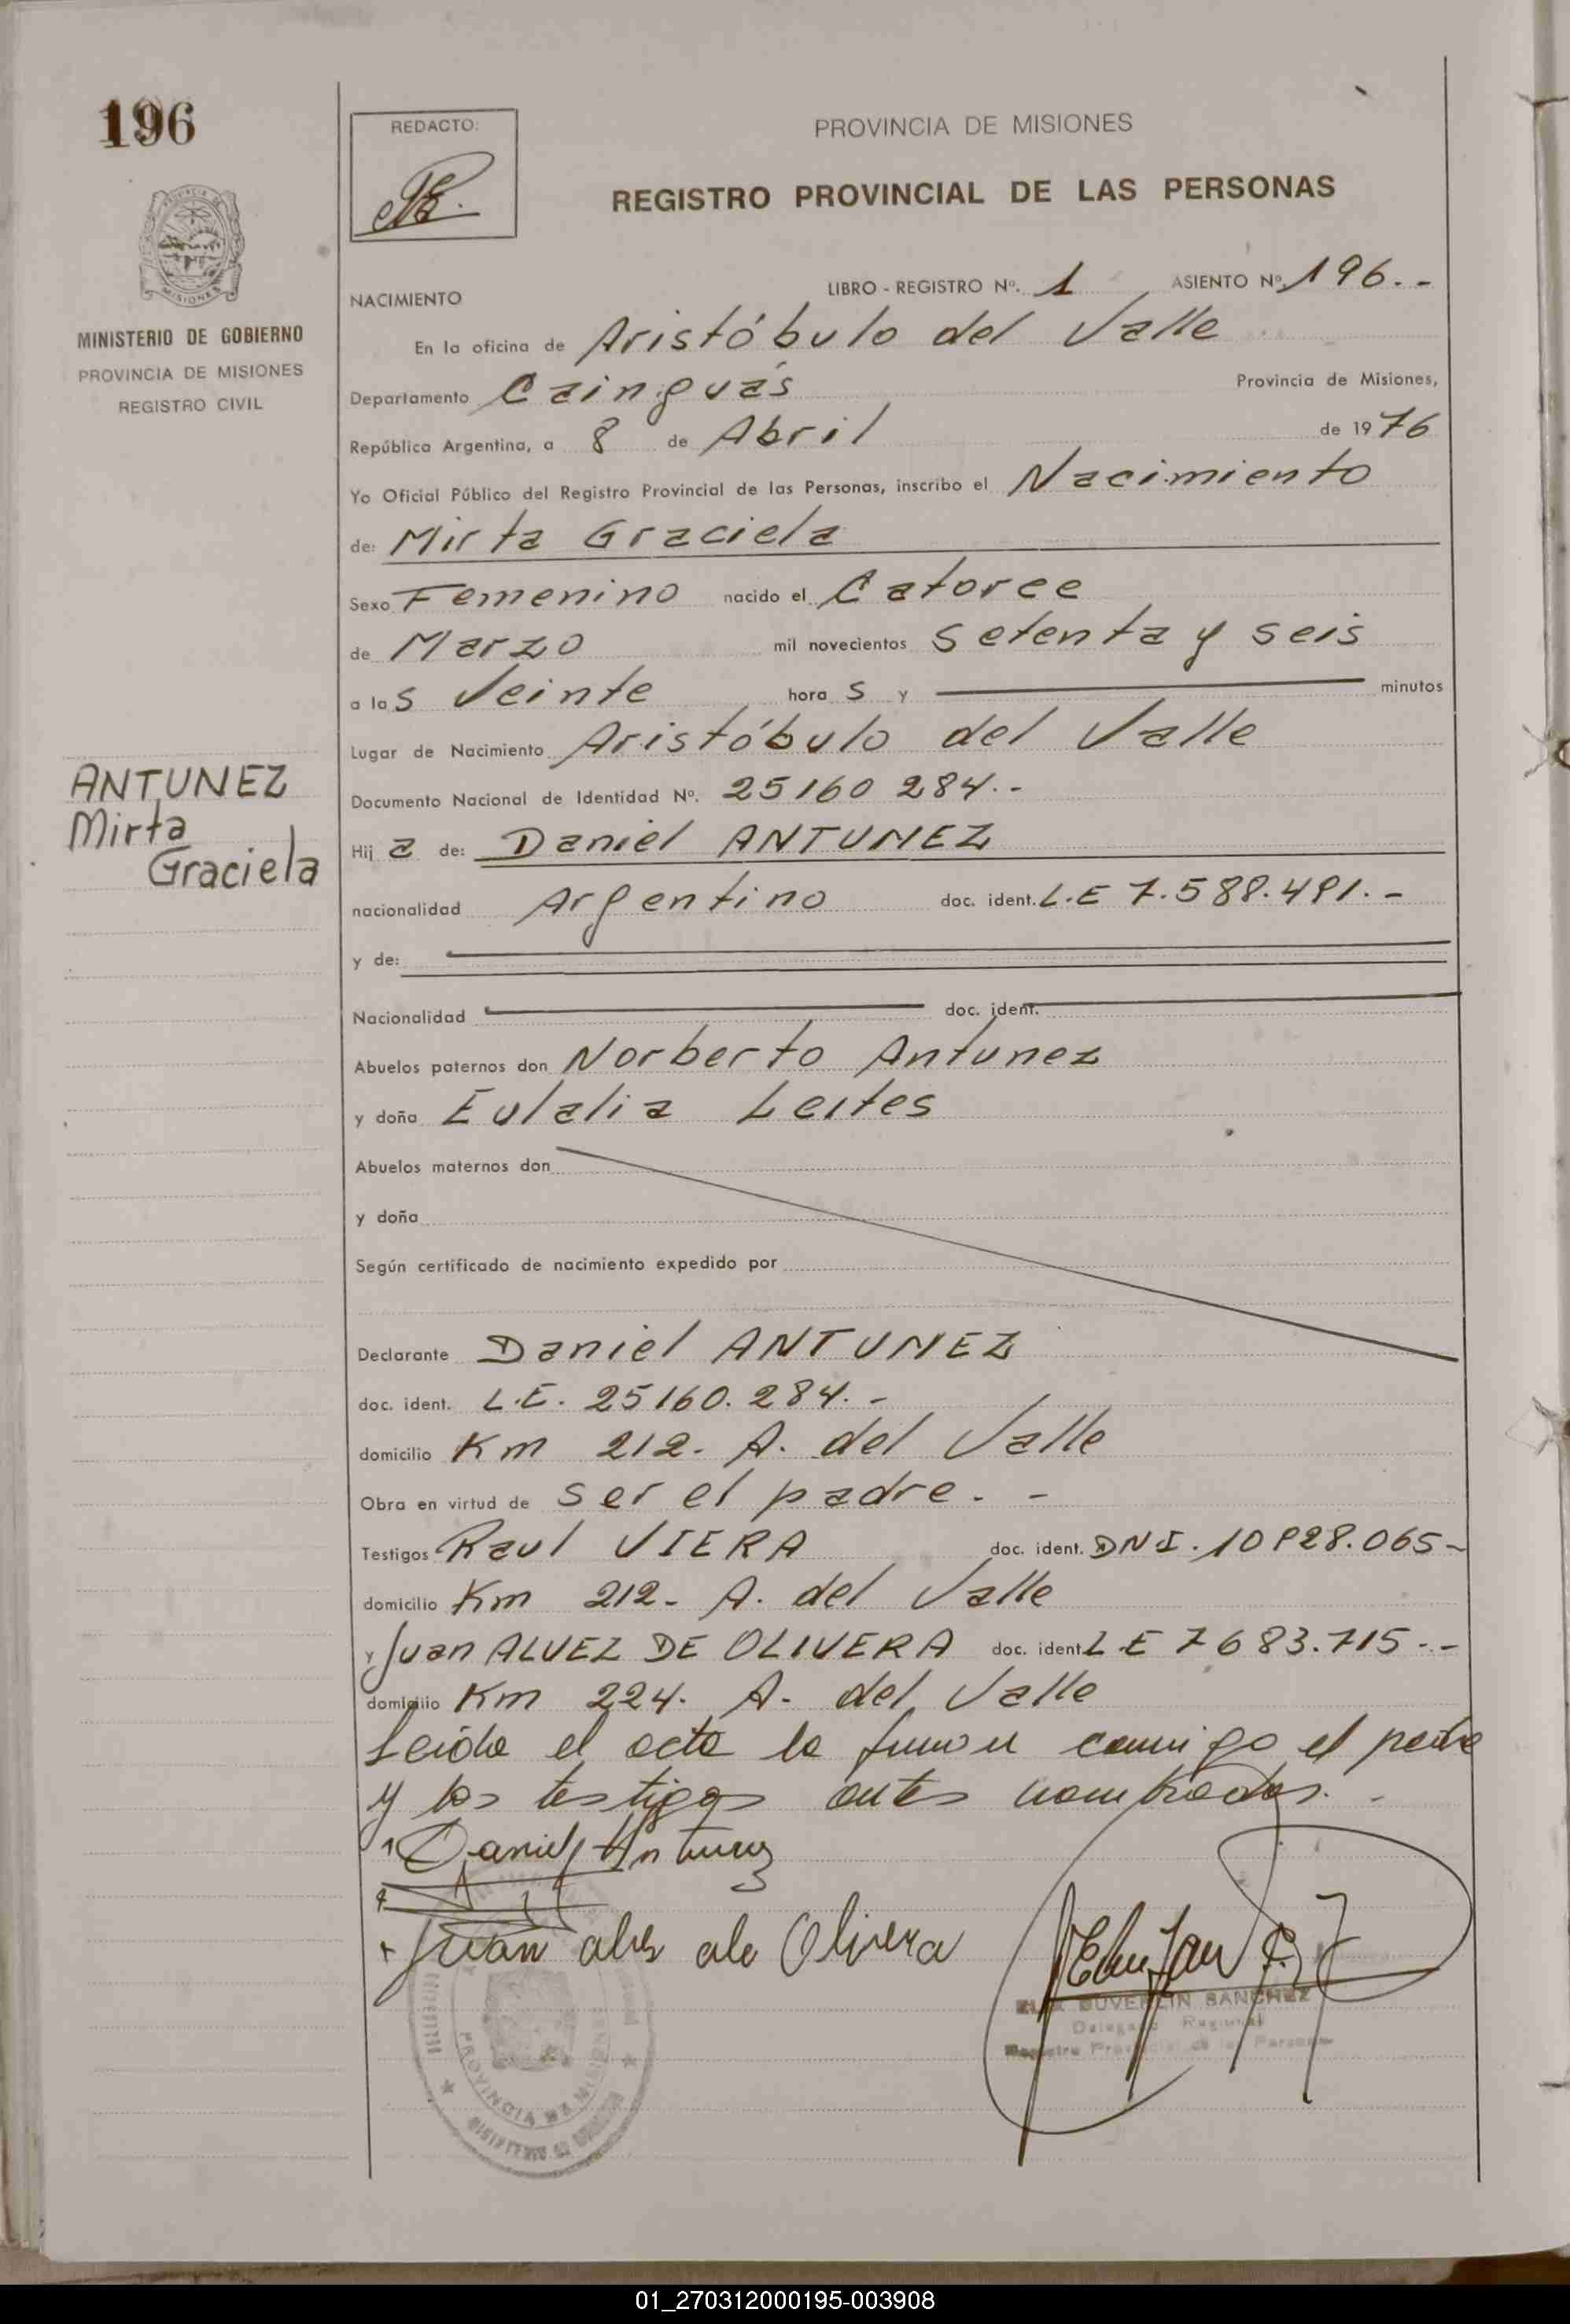 196
REDACTO:
PROVINCIA DE MISIONES
REGISTRO PROVINCIAL DE LAS PERSONAS
MISIONES
MINISTERIO DE GOBIERNO
PROVINCIA DE MISIONES
REGISTRO CIVIL
NACIMIENTO LIBRO - REGISTRO Nº. 1 ASIENTO Nº. 196.-
En la oficina de Aristóbulo del Valle
Departamento Cainguás Provincia de Misiones,
República Argentina, a 8 de Abril de 1976
Yo Oficial Público del Registro Provincial de las Personas, inscribo el Nacimiento
de: Mirta Graciela
Sexo Femenino nacido el Catorce
de Marzo mil novecientos setenta y seis
a las Veinte horas y minutos
Lugar de Nacimiento Aristóbulo del Valle
ANTUNEZ
Mirta
Graciela
Documento Nacional de Identidad Nº. 25160 284.-
Hija de: Daniel ANTUNEZ
nacionalidad Argentino doc. ident. L.E 7.588.491.-
y de:
Nacionalidad doc. ident.
Abuelos paternos don Norberto Antunez
y doña Eulalia Leites
Abuelos maternos don
y doña
Según certificado de nacimiento expedido por
Declarante Daniel ANTUNEZ
doc. ident. L.E. 25160.284.-
domicilio Km 212. A. del Valle
Obra en virtud de ser el padre.-
Testigos Raul VIERA doc. ident. DNI. 10928.065-
domicilio Km 212- A. del Valle
y Juan ALVEZ DE OLIVERA doc. ident L E 7683.715.-
domicilio Km 224. A- del Valle
Leída el acta la firman conmigo el padre
y los testigos antes nombrados.-
Daniel Antunez
Juan alves de Olivera
SUVERLIN SANCHEZ
Delegado Regional
Registro Provincial de las Personas
PROVINCIA DE MISIONES
01_270312000195-003908